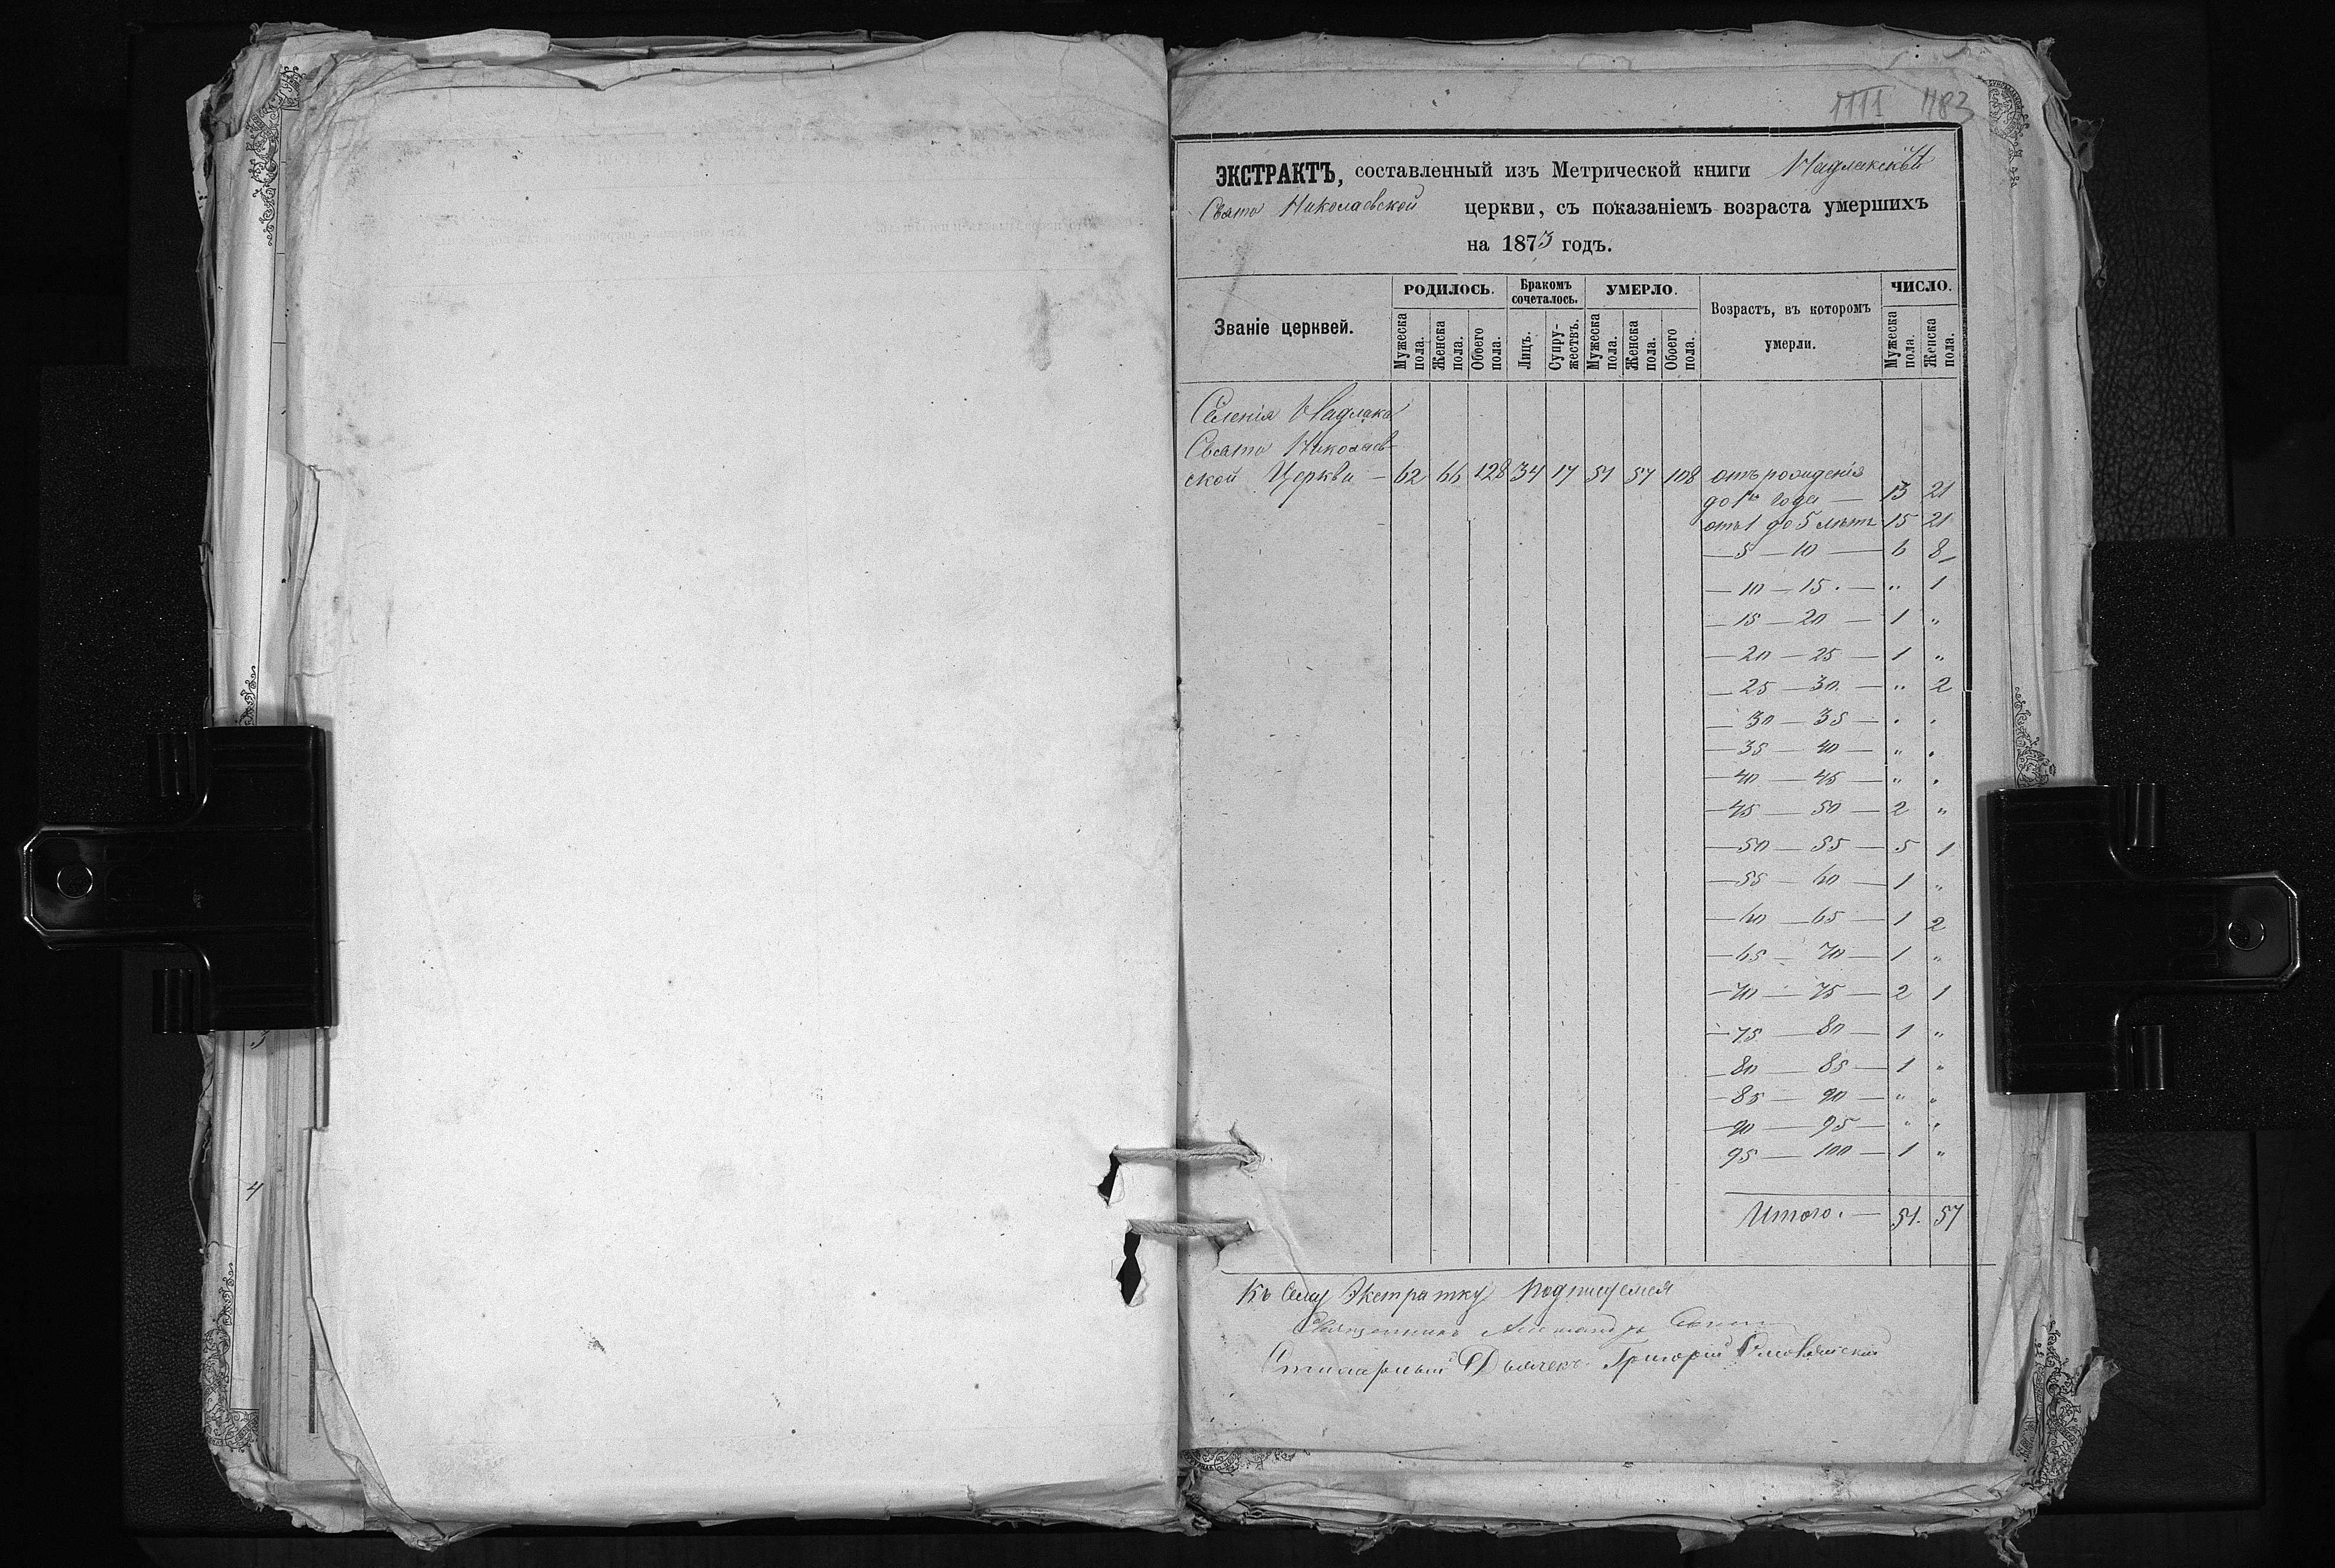 1111 1183
ЭКСТРАКТЪ, составленный изъ Метрической книги Надлакской
Свято Николаевской церкви, съ показаніемъ возраста умершихъ
на 1873 годъ.
Званіе церквей. РОДИЛОСЬ. Бракомъ сочеталось. УМЕРЛО. Возрастъ, въ которомъ умерли. ЧИСЛО.
Мужеска пола. Женска пола. Обоего пола. Лицъ. Супружествъ. Мужеска пола. Женска пола. Обоего пола. Мужеска пола. Женска пола.
Селенія Надлака
Свято Николаев-
ской Церкви — 62 66 128 34 17 51 57 108 отъ рожденія
до 1го года — 13 21
отъ 1 до 5 лѣтъ 15 21
— 5 — 10 — 6 8
— 10 — 15 . — „ 1
— 15 — 20 — 1 „
— 20 — 25 — 1 „
— 25 — 30 — „ 2
— 30 — 35 — „ „
— 35 — 40 — „ „
— 40 — 45 — „ „
— 45 — 50 — 2 „
— 50 — 55 — 5 1
— 55 — 60 — 1 „
— 60 — 65 — 1 2
— 65 — 70 — 1 „
— 70 — 75 — 2 1
— 75 — 80 — 1 „
— 80 — 85 — 1 „
— 85 — 90 — „ „
— 90 — 95 — „ „
95 — 100 — 1 „
Итого. — 51. 57
Къ Сему Экстратку Подпишемся
Священникъ
Дьячекъ Григорій
4